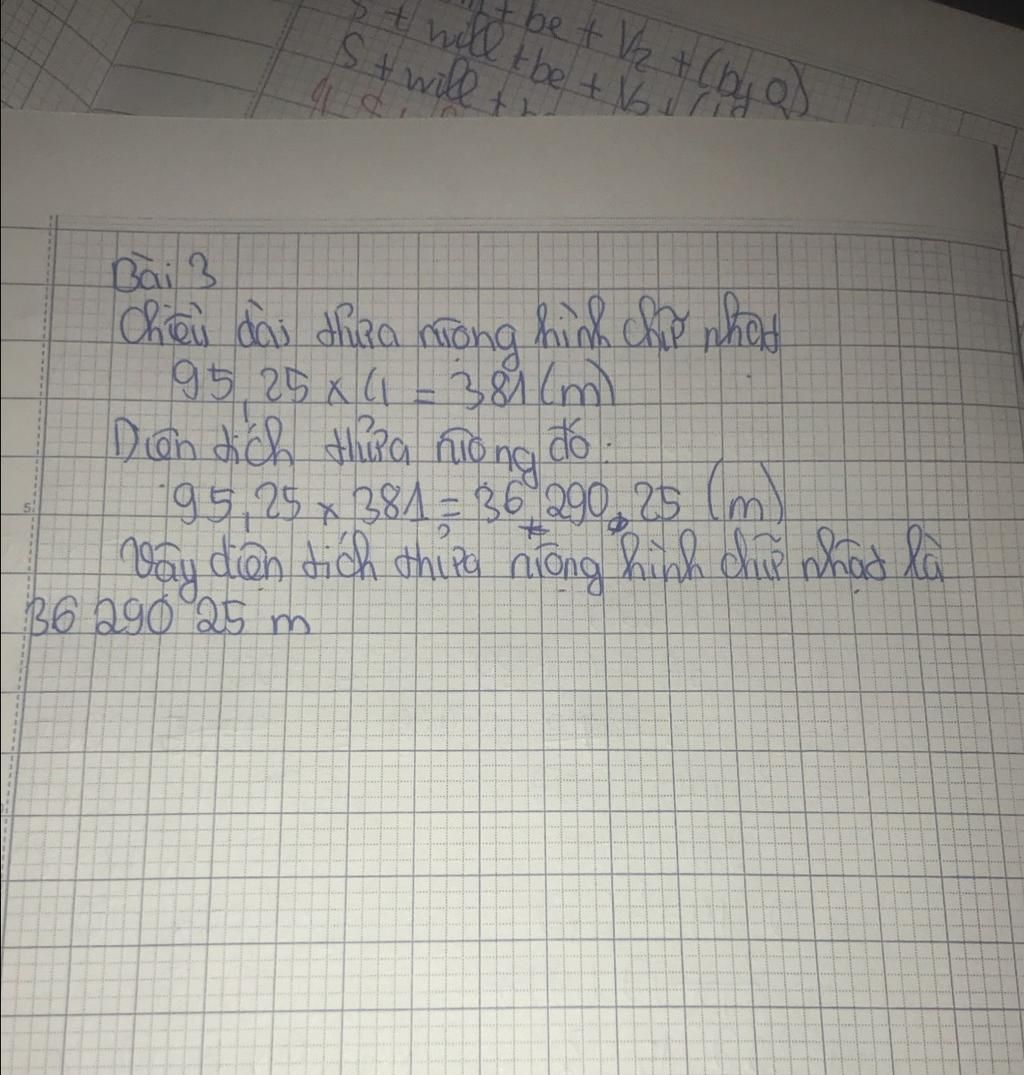 S + will + be + V3 + (by O)
S + will + be + V3
Bài 3
Chiều dài thửa ruộng hình chữ nhật
95,25 x 4 = 381 (m)
Diện tích thửa ruộng đó:
95,25 x 381 = 36 290,25 (m)
Vậy diện tích thửa ruộng hình chữ nhật là
36 290 25 m